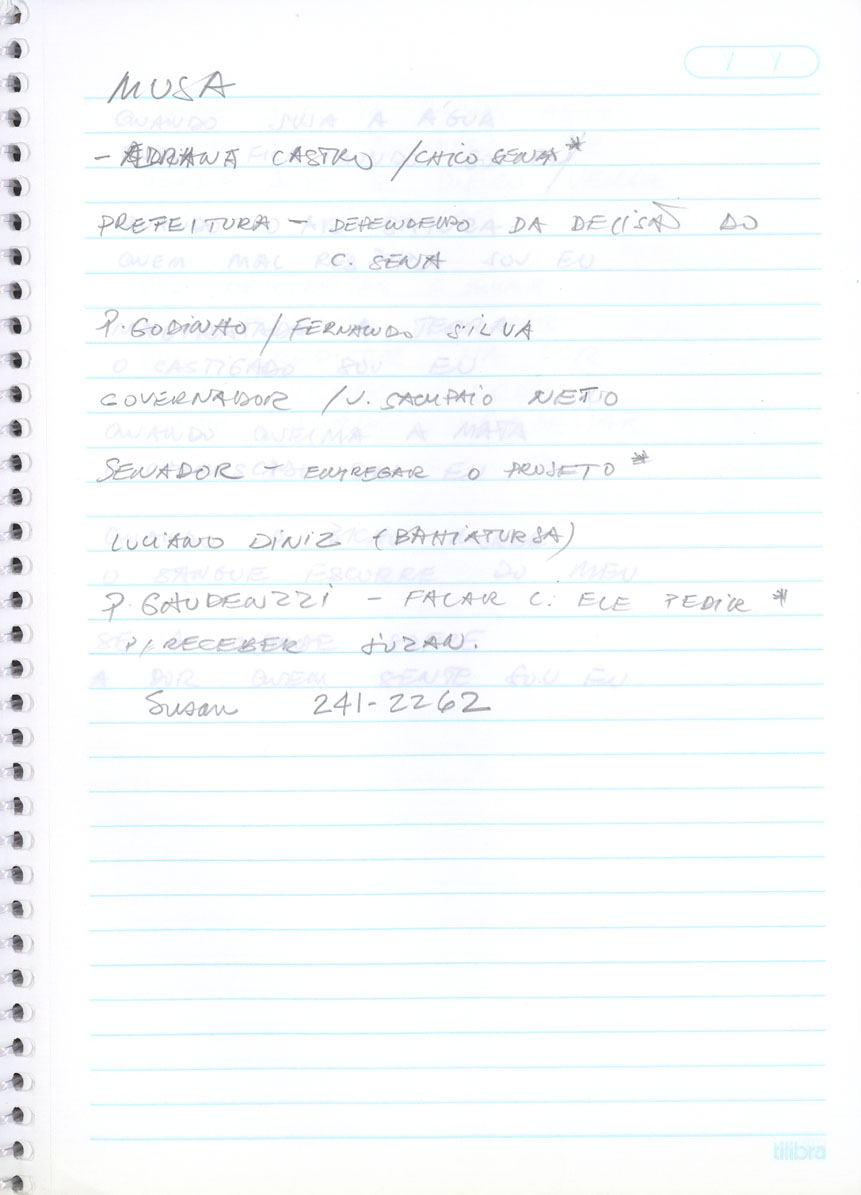 MUSA
- ADRIANA CASTRO / CHICO SENA *
PREFEITURA - DEPENDENDO DA DECISÃO DO
C. SENA
P. GODINHO / FERNANDO SILVA
GOVERNADOR / J. SAMPAIO NETO
SENADOR - ENTREGAR O PROJETO *
LUCIANO DINIZ (BAHIATURSA)
P. GAUDENZZI - FALAR C. ELE PEDIR *
P/ RECEBER SUZAN.
Susan 241-2262
tilibra